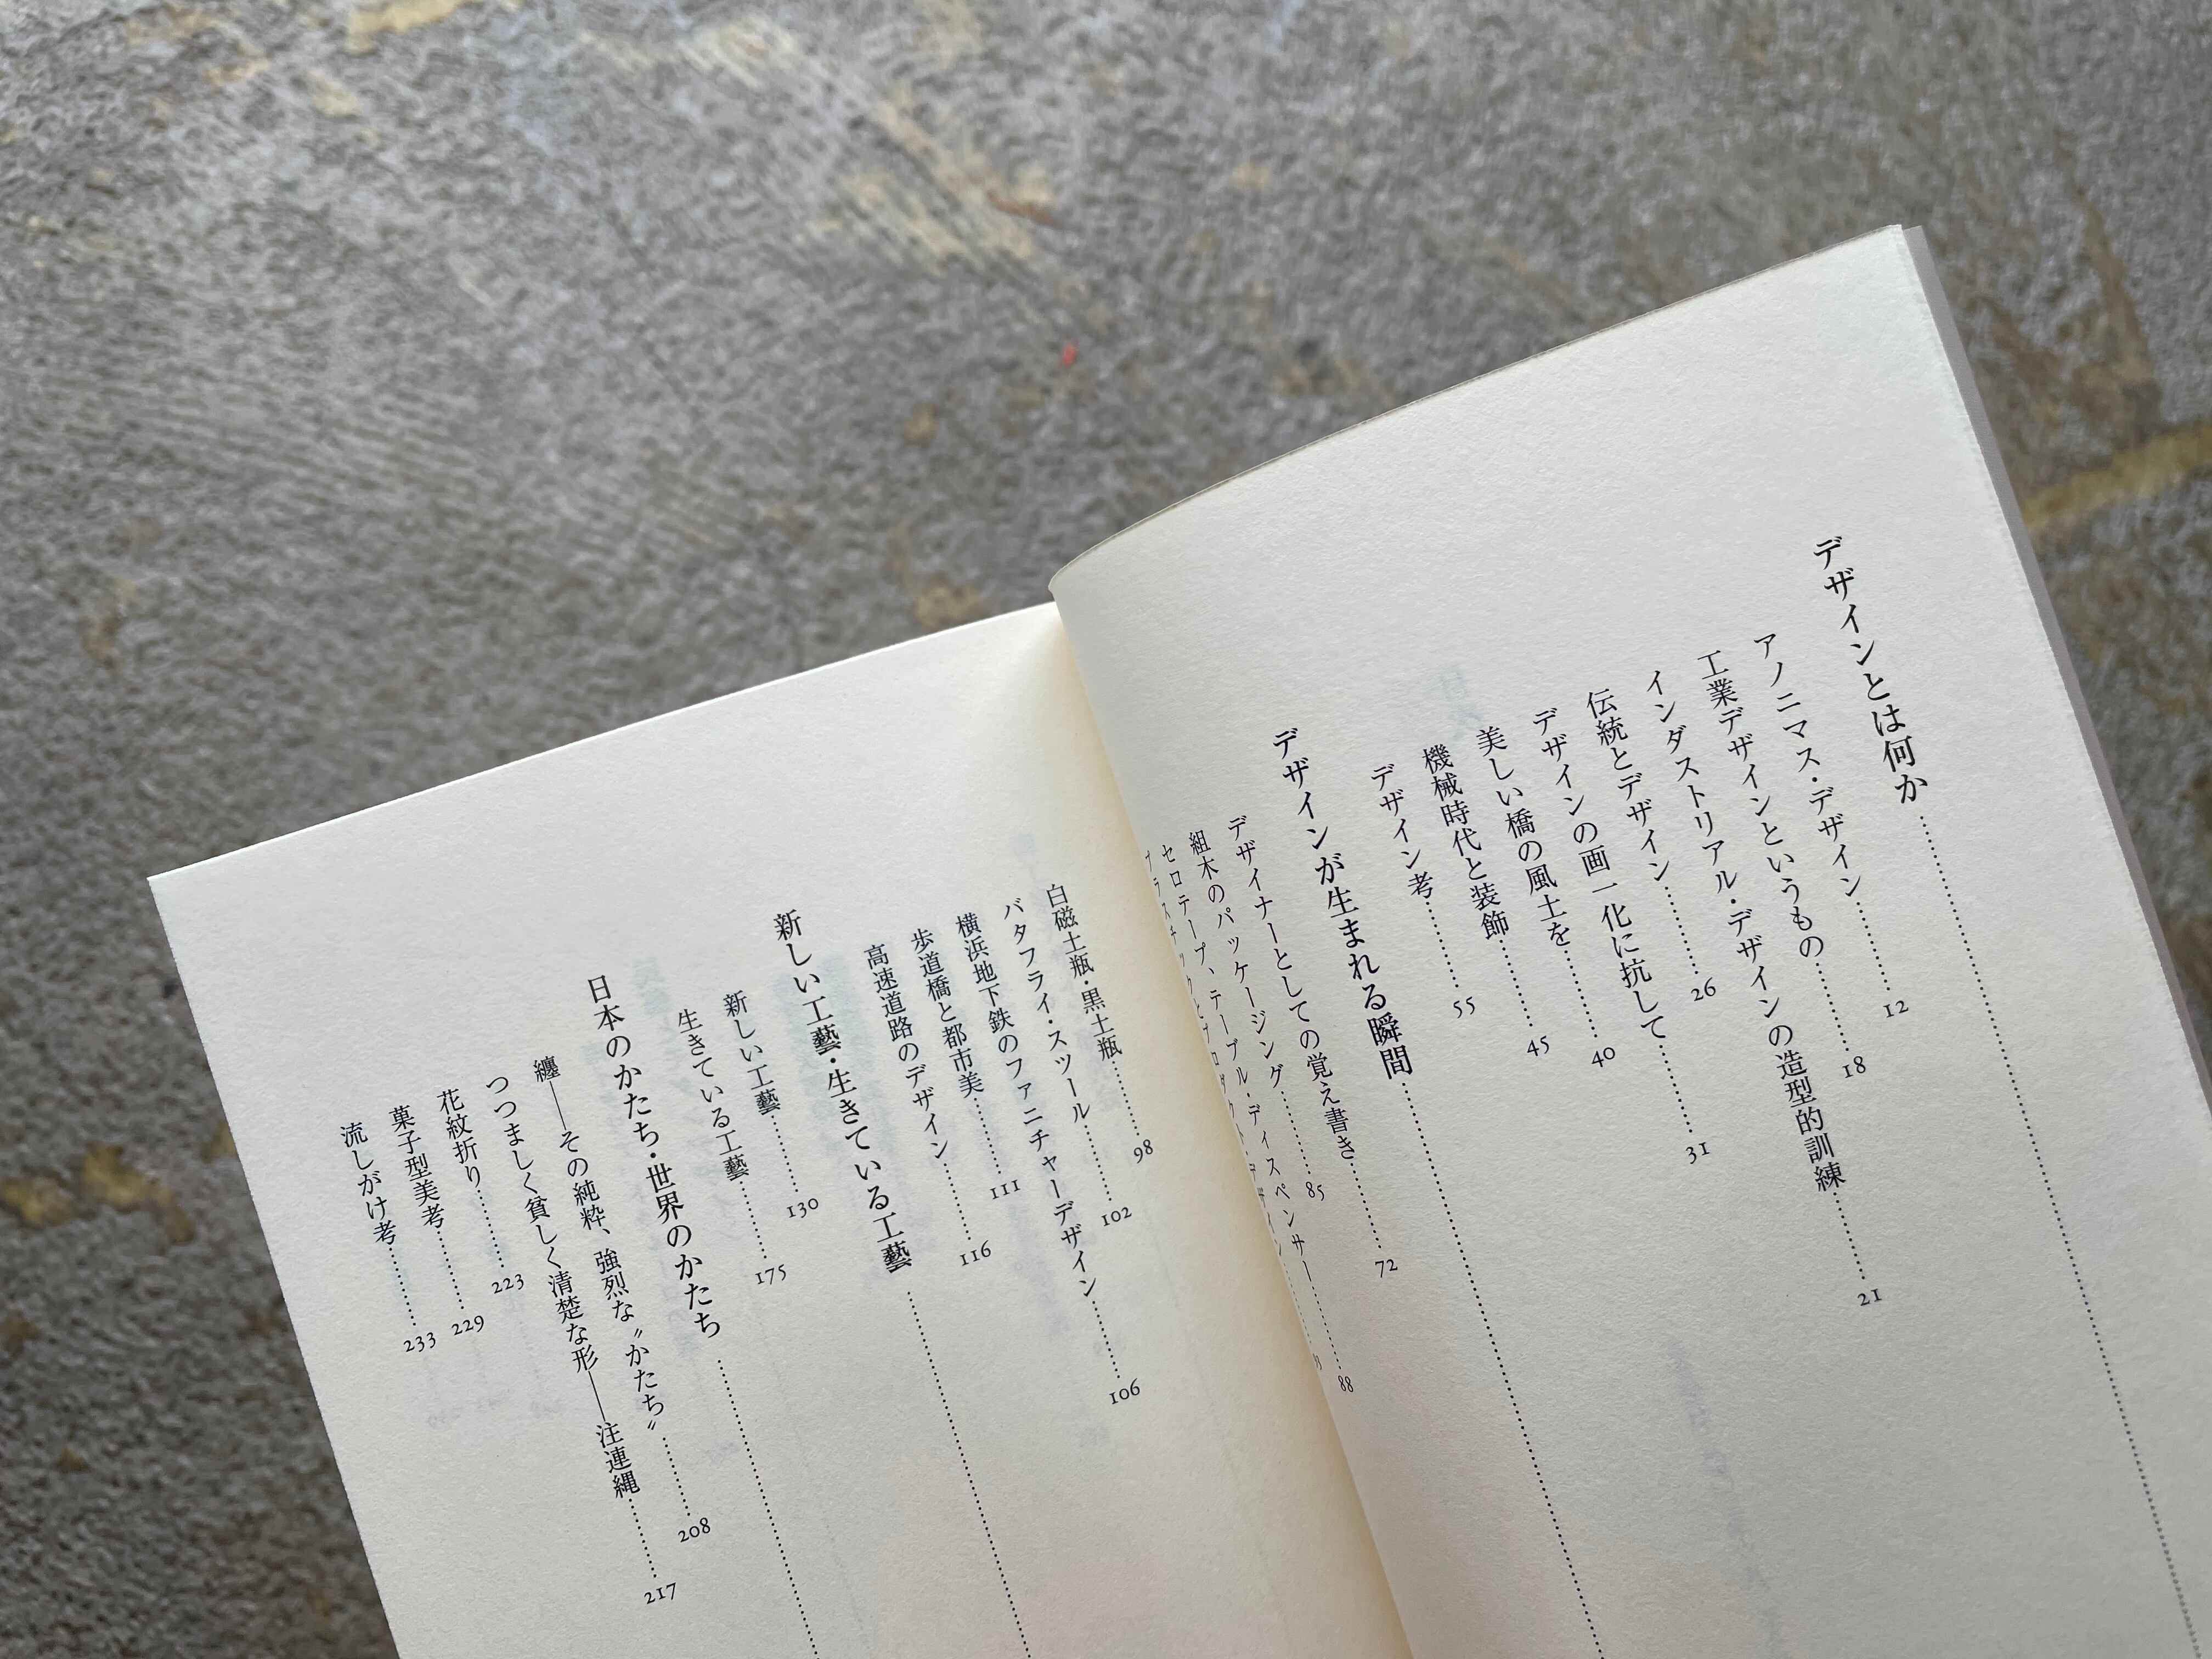 デザインとは何か
アノニマス・デザイン 12
工業デザインというもの 18
インダストリアル・デザインの造型的訓練 21
伝統とデザイン 26
デザインの画一化に抗して 31
美しい橋の風土を 40
機械時代と装飾 45
デザイン考 55
デザインが生まれる瞬間
デザイナーとしての覚え書き 72
組木のパッケージング 85
セロテープ、テープル・ディスペンサー 88
白磁土瓶・黒土瓶 98
バタフライ・スツール 102
横浜地下鉄のファニチャーデザイン 106
歩道橋と都市美 111
高速道路のデザイン 116
新しい工藝・生きている工藝
新しい工藝 130
生きている工藝 175
日本のかたち・世界のかたち
纏——その純粋、強烈な〝かたち〟 208
つつましく貧しく清楚な形——注連縄 217
花紋折り 223
菓子型美考 229
流しがけ考 233